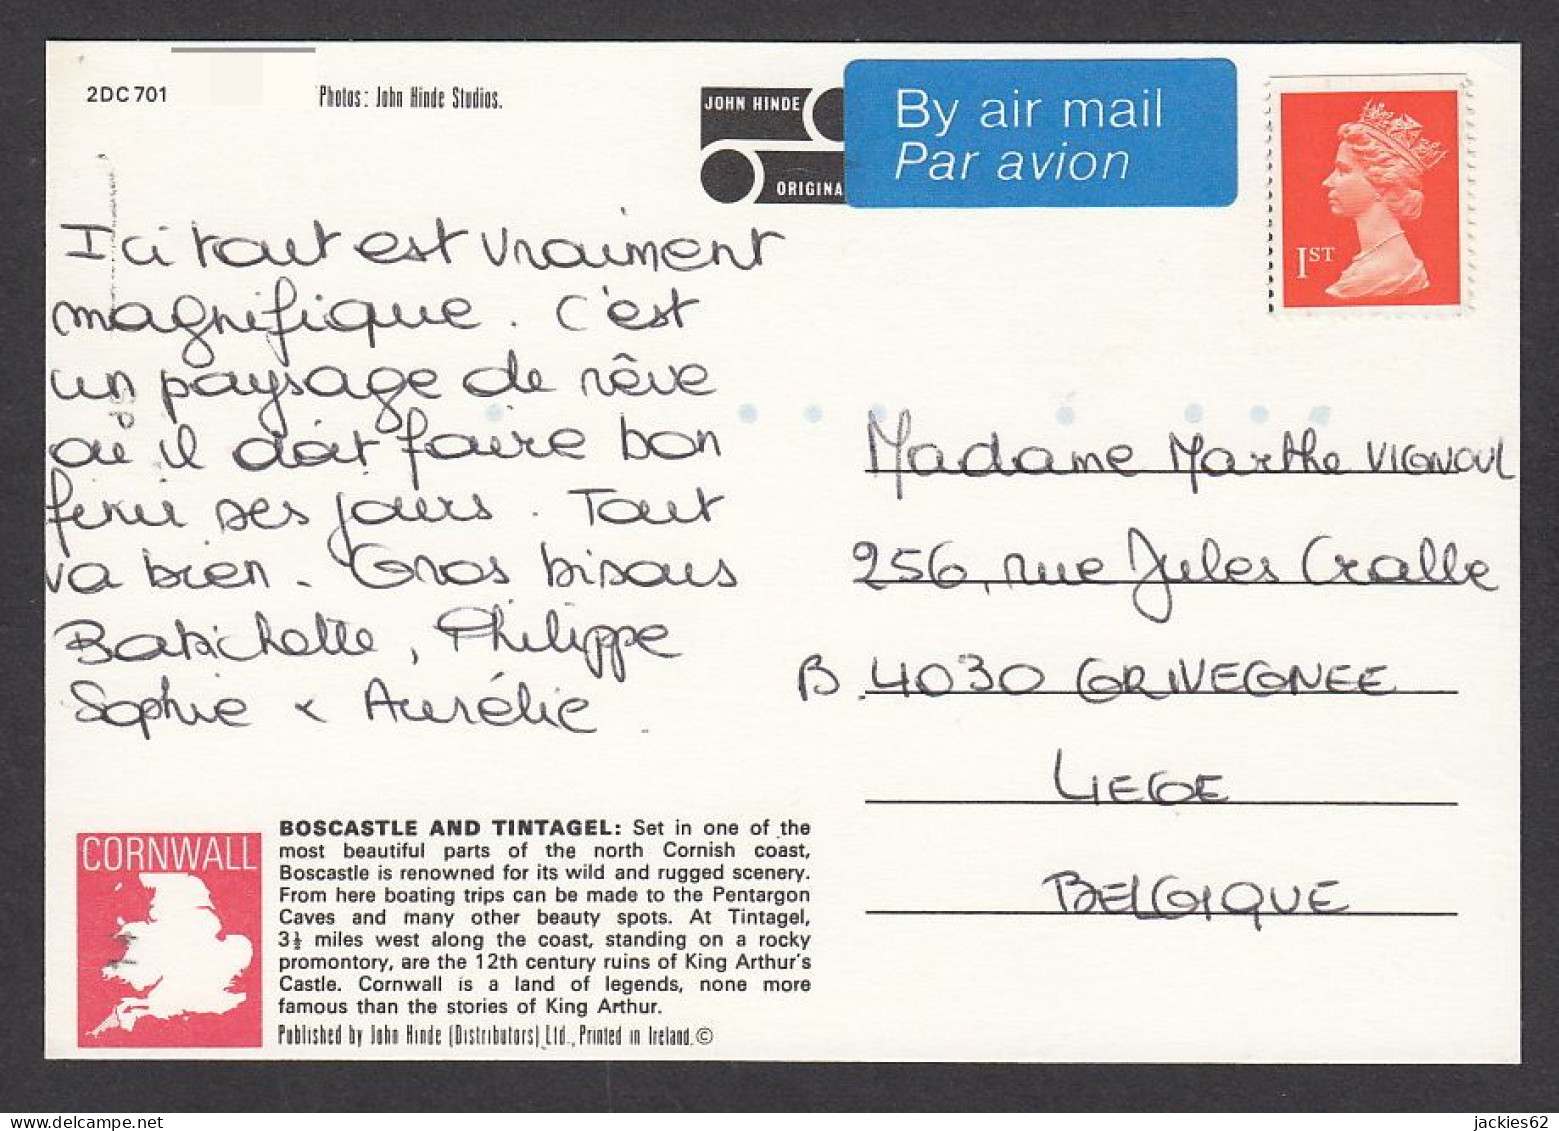 2DC 701
Photos: John Hinde Studios.
JOHN HINDE
ORIGINA
By air mail
Par avion
1ST
Ici tout est vraiment
magnifique. C'est
un paysage de rêve
où il doit faire bon
finir ses jours. Tout
va bien. Gros bisous
Babichette, Philippe
Sophie & Aurélie.
Madame Marthe VIGNOUL
256, rue Jules Cralle
B. 4030 GRIVEGNEE
LIEGE
BELGIQUE
CORNWALL
BOSCASTLE AND TINTAGEL: Set in one of the
most beautiful parts of the north Cornish coast,
Boscastle is renowned for its wild and rugged scenery.
From here boating trips can be made to the Pentargon
Caves and many other beauty spots. At Tintagel,
3½ miles west along the coast, standing on a rocky
promontory, are the 12th century ruins of King Arthur's
Castle. Cornwall is a land of legends, none more
famous than the stories of King Arthur.
Published by John Hinde (Distributors) Ltd., Printed in Ireland. ©
jackies62